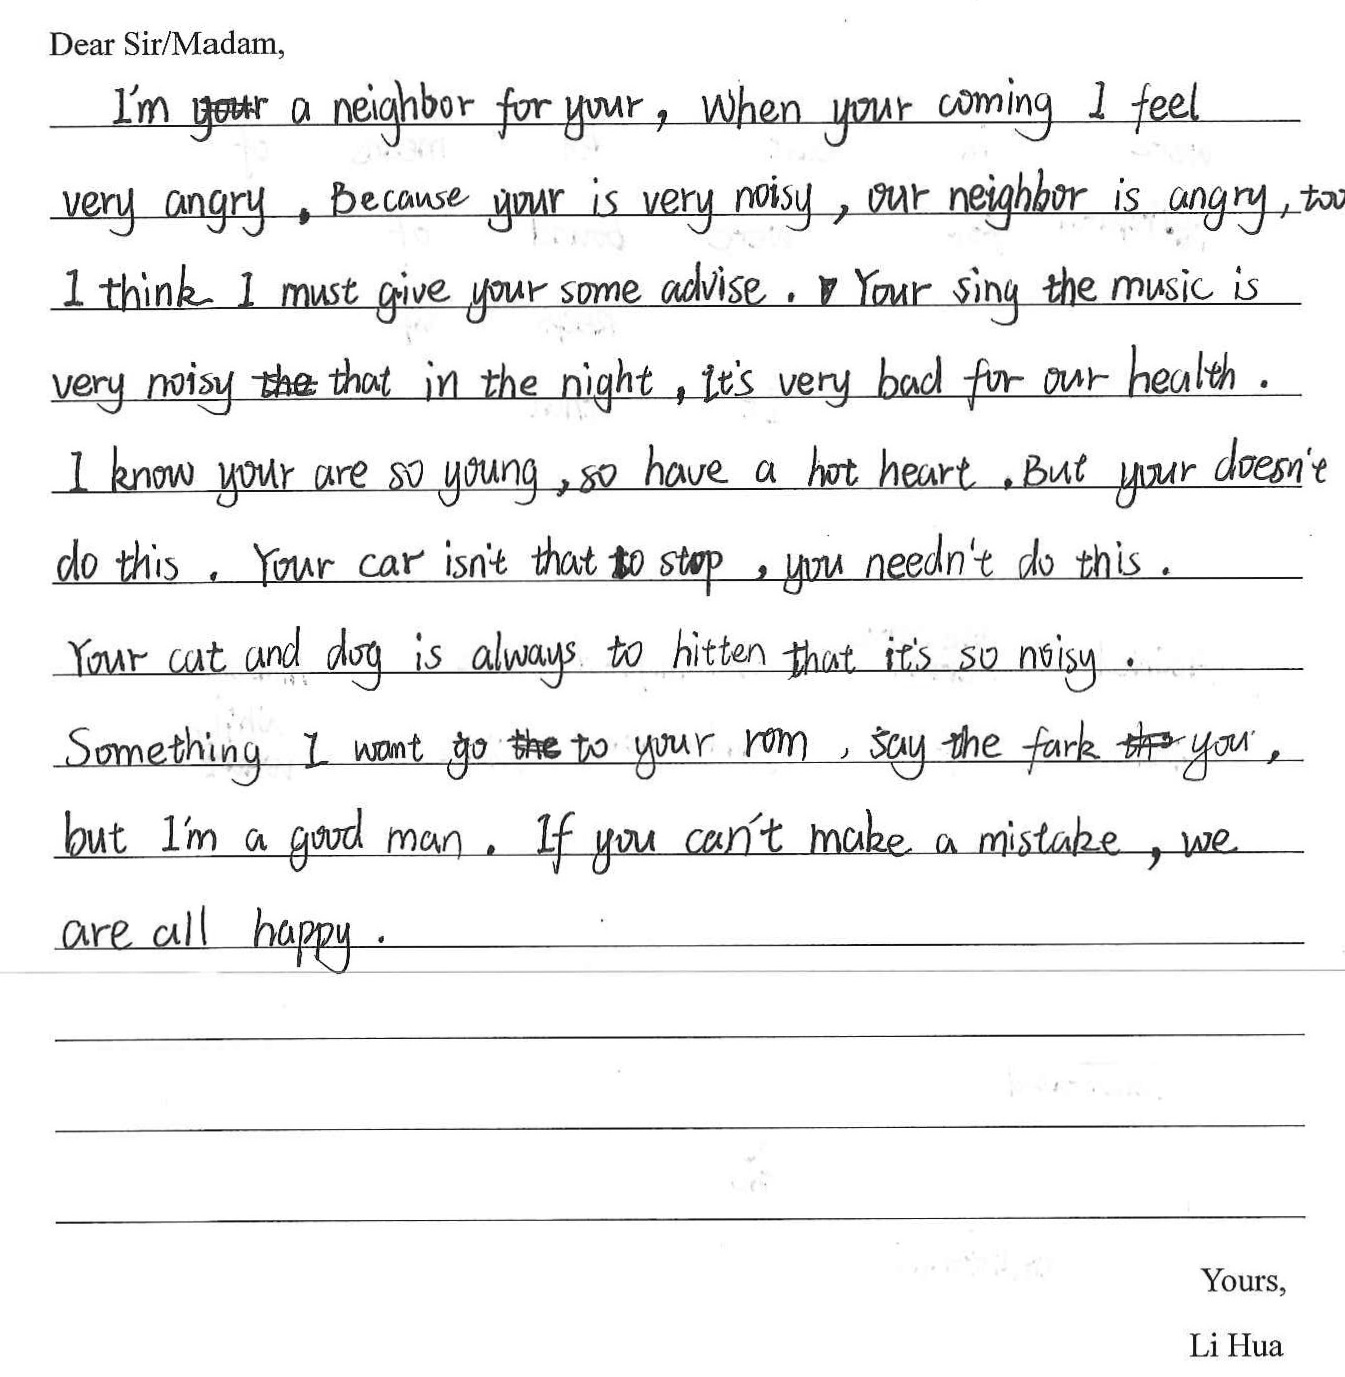 Dear Sir/Madam,
I'm your a neighbor for your, when your coming I feel
very angry. Because your is very noisy, our neighbor is angry, too
I think I must give your some advise. Your sing the music is
very noisy the that in the night, it's very bad for our health.
I know your are so young, so have a hot heart. But your doesn't
do this. Your car isn't that to stop, you needn't do this.
Your cat and dog is always to hitten that it's so noisy.
Something I want go the to your rom, say the fark the you,
but I'm a good man. If you can't make a mistake, we
are all happy.
Yours,
Li Hua